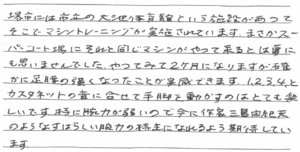 堺市には市立の大池体育館という施設があって
そこでマシントレーニングが実施されています。まさかスーパー
コート堺にそれと同じマシンがやって来るとは夢に
も思いませんでした。やってみて2ケ月になりますが確
かに足腰の強くなったことが実感できます。1.2.3.4.と
カスタネットの音に合せて手脚を動かすのはとても楽
しいです。特に腕力が弱いので今に作家三島由紀夫
のようなすばらしい腕力の持主になれるよう期待してい
ます